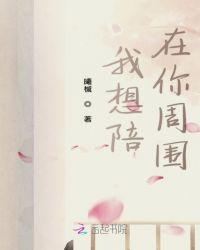 我想陪
在你周围
著
云起书院